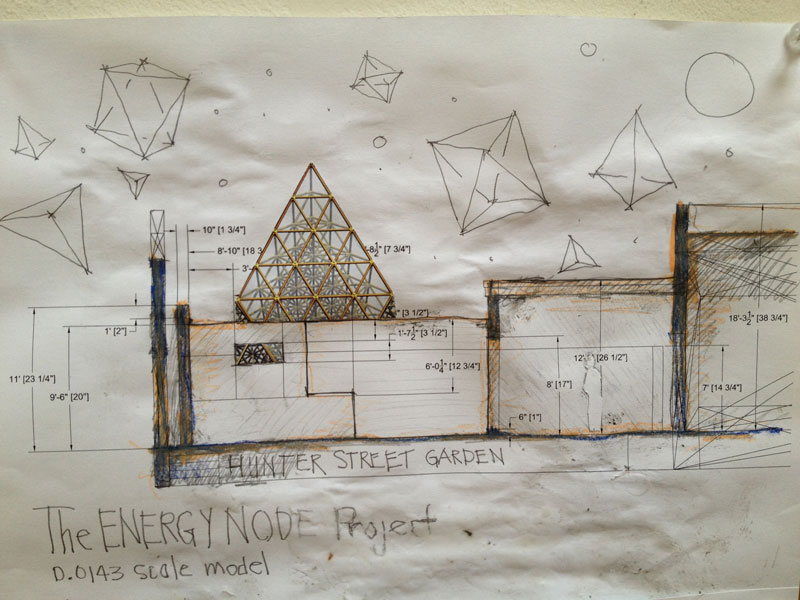 10" [1 3/4"]
8'-10" [18 3
3'-
-8½" [7 3/4"]
" [3 1/2"]
1' [2"]
1'-7½" [3 1/2"]
18'-3½" [38 3/4"]
6'-0¼" [12 3/4"]
12' [26 1/2"]
11' [23 1/4"]
9'-6" [20"]
8' [17"]
7' [14 3/4"]
6" [1"]
HUNTER STREET GARDEN
The ENERGY NODE Project
D.0143 scale model